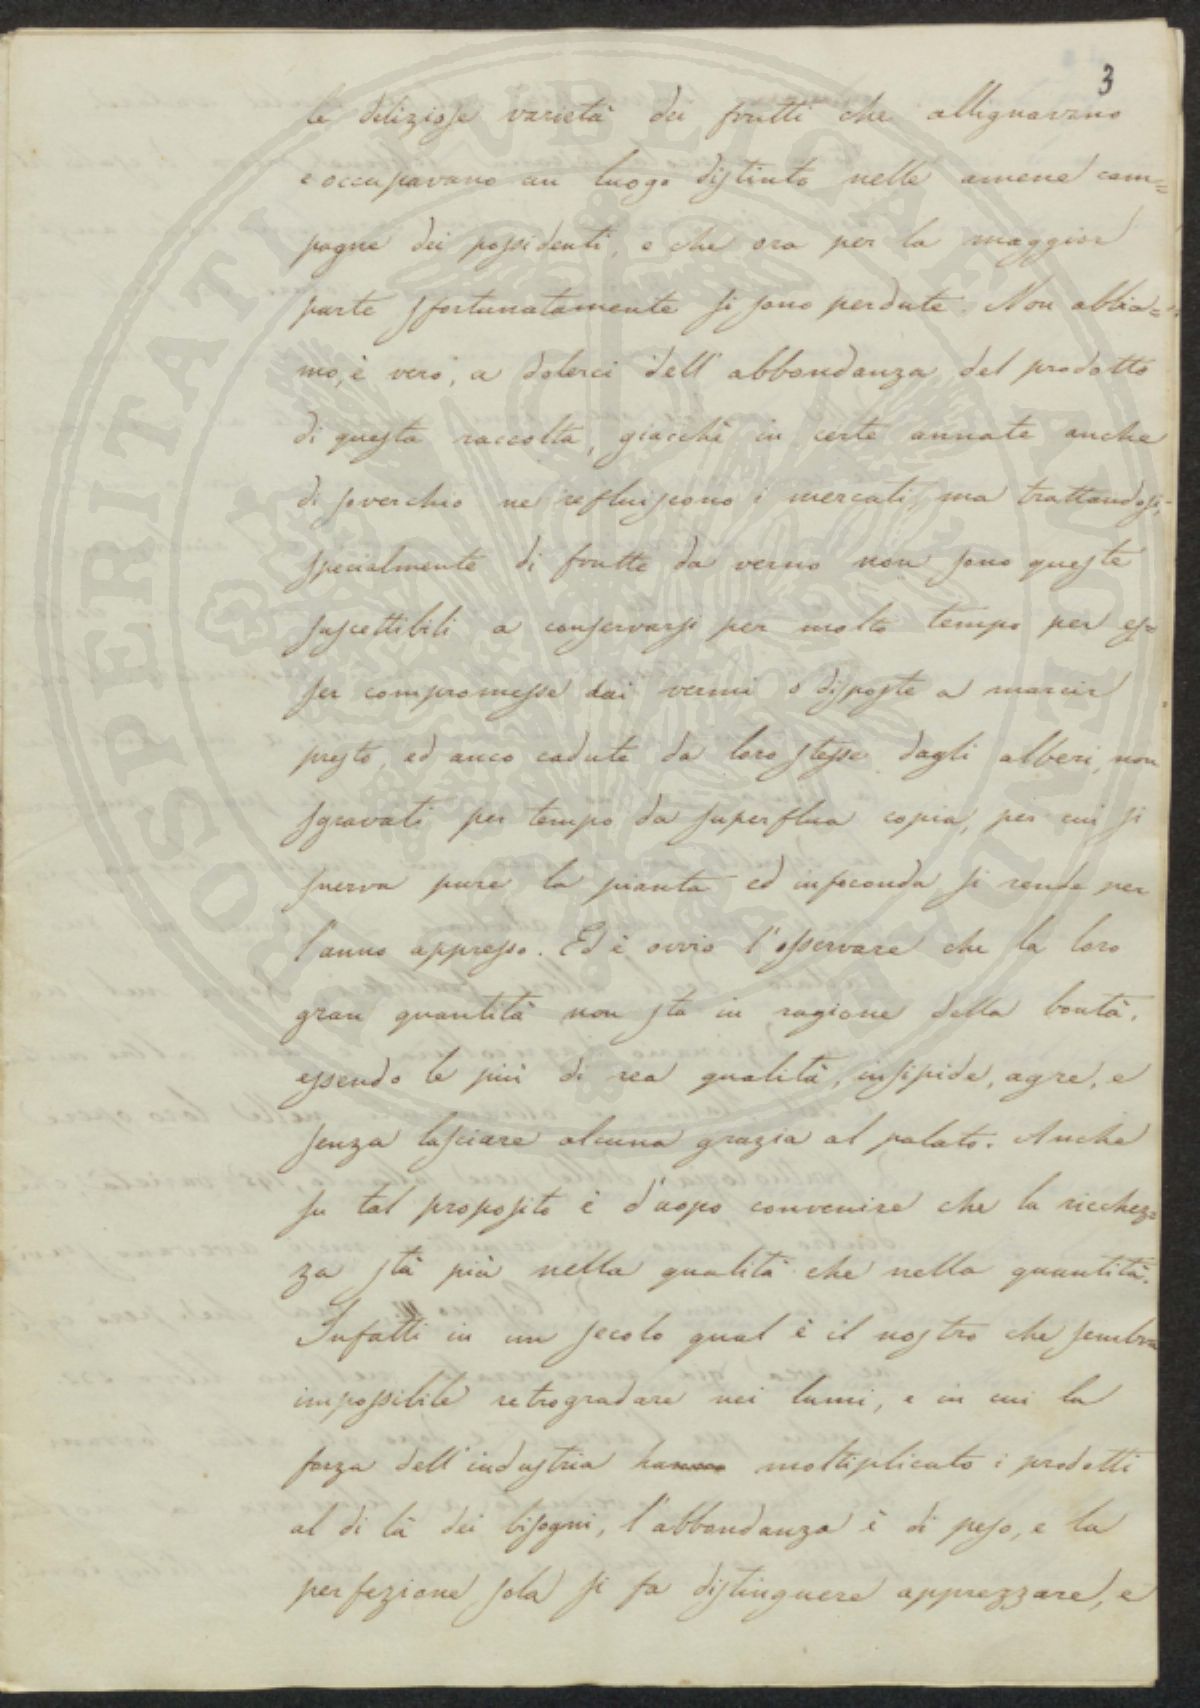 3
le deliziose varietà dei frutti che allignavano
e occupavano un luogo distinto nelle amene cam=
pagne dei possidenti, e che ora per la maggior
parte sfortunatamente si sono perdute. Non abbia=
mo, è vero, a dolerci dell'abbondanza del prodotto
di questa raccolta, giacchè in certe annate anche
di soverchio ne refluiscono i mercati, ma trattandosi
specialmente di frutte da verno non sono queste
suscettibili a conservarsi per molto tempo per es=
ser compromesse dai vermi o disposte a marcir
presto, ed anco cadute da loro stesse dagli alberi, non
sgravati per tempo da superflua copia, per cui si
snerva pure la pianta ed infeconda si rende per
l'anno appresso. Ed è ovvio l'osservare che la loro
gran quantità non sta in ragione della bontà,
essendo le più di rea qualità, insipide, agre, e
senza lasciare alcuna grazia al palato. Anche
su tal proposito è d'uopo convenire che la ricchez=
za stà più nella qualità che nella quantità.
Infatti in un secolo qual è il nostro che sembra
impossibile retrogradare nei lumi, e in cui la
forza dell'industria ha moltiplicato i prodotti
al di là dei bisogni, l'abbondanza è di peso, e la
perfezione sola si fa distinguere apprezzare, e
PROSPERITATI PUBLICAE AUGENDAE